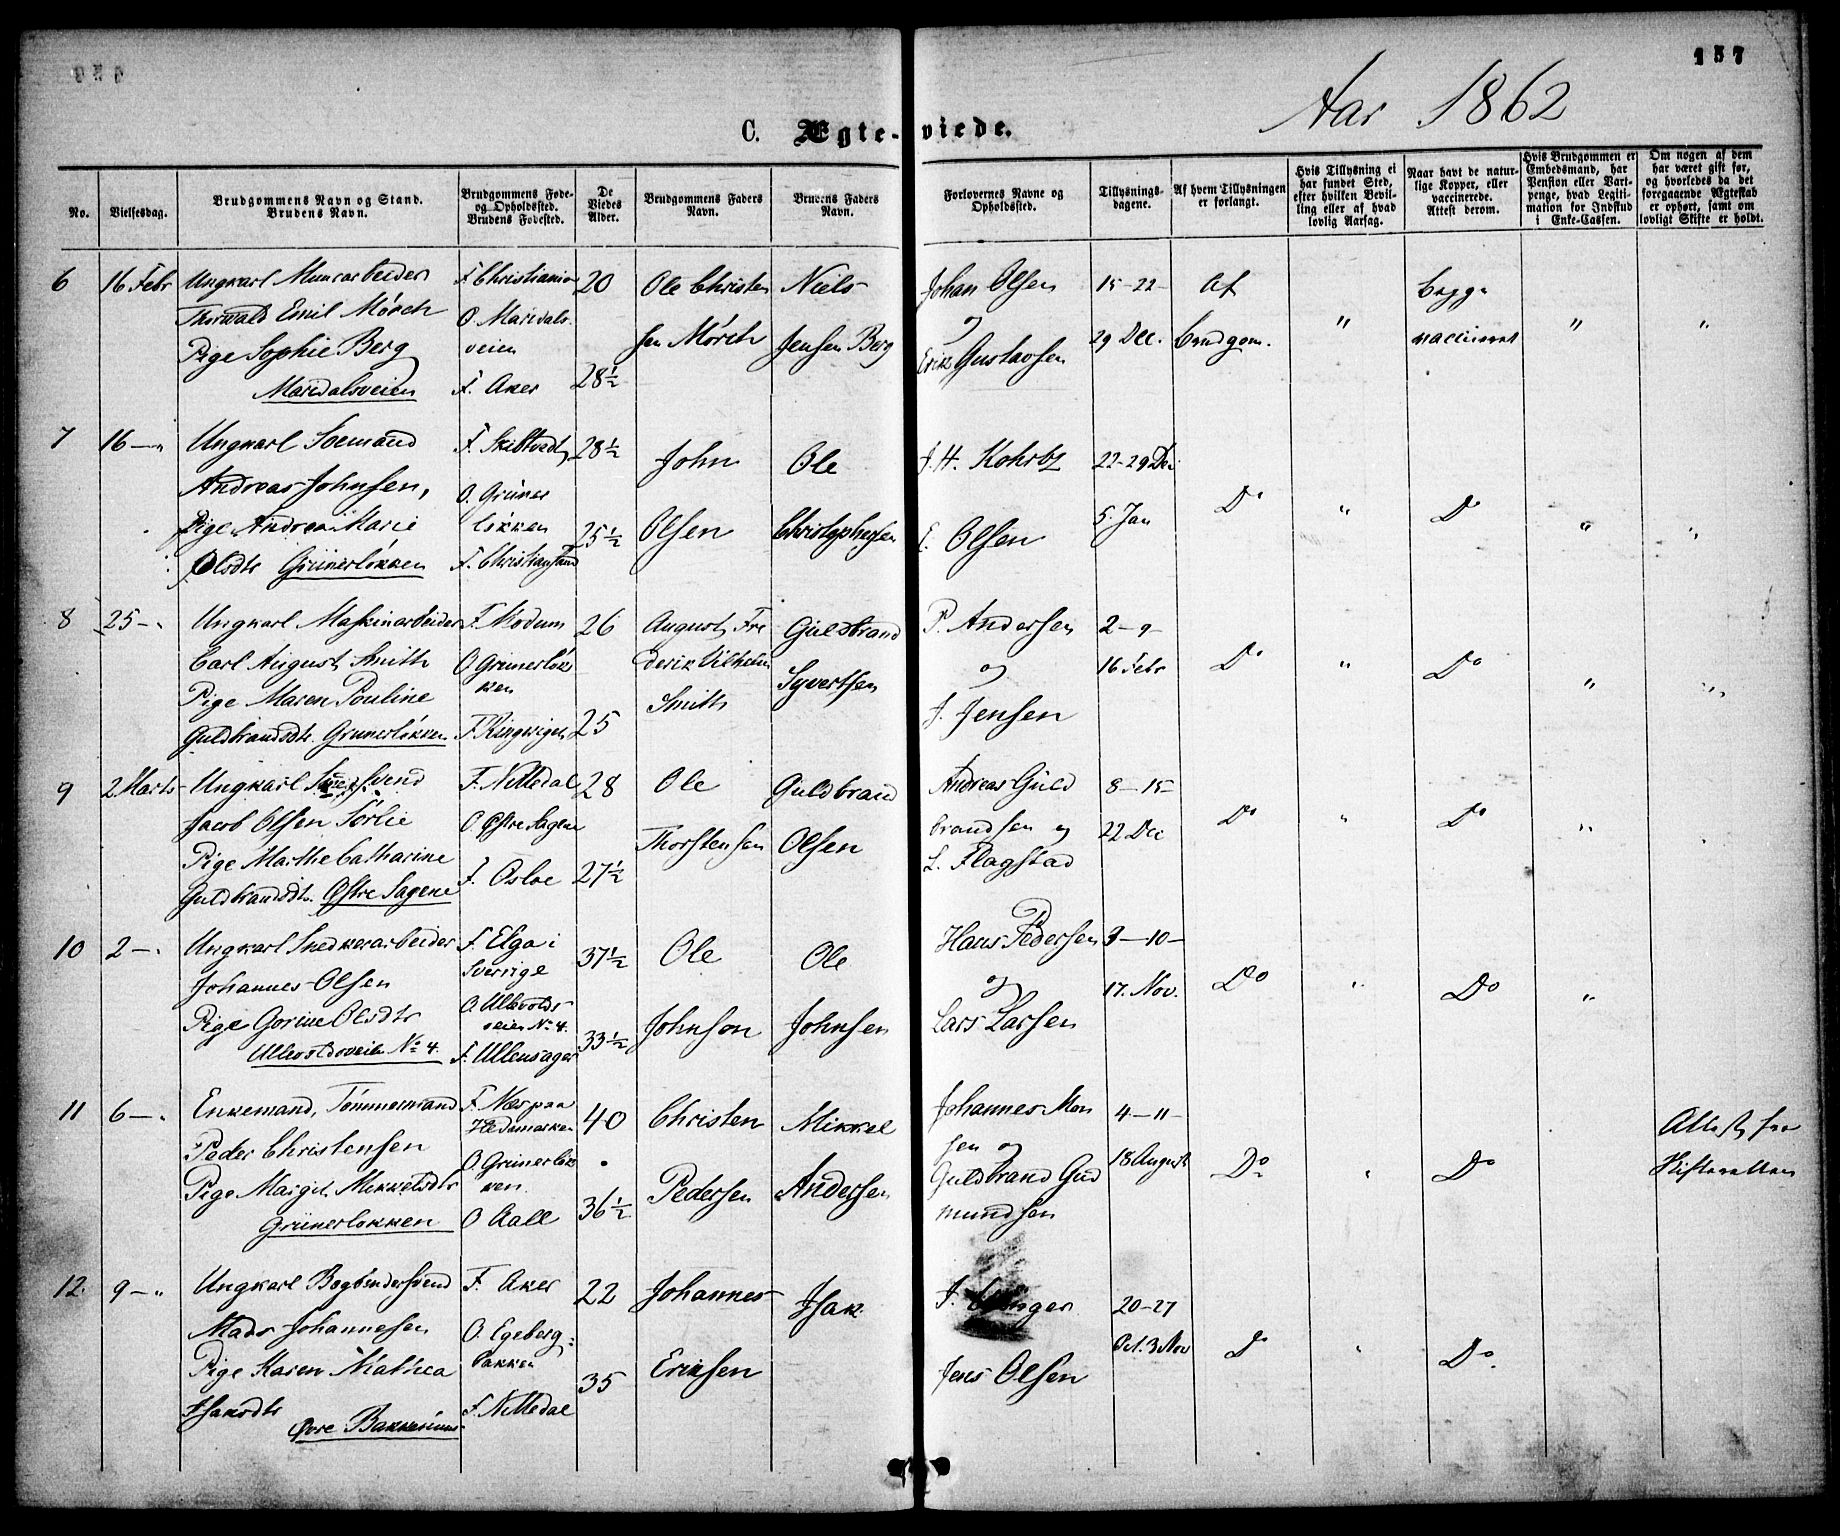 157
Aar 1862
C. Ægte-viede.
No.
Vielsesdag.
Brudgommens Navn og Stand.
Brudens Navn.
Brudgommens Føde-
og Opholdssted.
Brudens Fødested.
De
Viedes
Alder.
Brudgommens Faders
Navn.
Brudens Faders
Navn.
Forlovernes Navne og
Opholdssted.
Tillysnings-
dagene.
Af hvem Tillysningen
er forlangt.
Hvis Tillysning ei
har fundet Sted,
efter hvilken Bevil-
ling eller af hvad
lovlig Aarsag.
Naar havt de natur-
lige Kopper, eller
vaccinerede.
Attest derom.
Hvis Brudgommen er
Embedsmand, har
Pension eller Vart-
penge, hvad Legiti-
mation for Indskud
i Enke-Cassen.
Om nogen af dem
har været gift før,
og hvorledes da det
foregaaende Ægteskab
er ophørt, samt om
lovligt Skifte er holdt.
6
16 Febr
Ungkarl Murarbeider
Thorwald Emil Mörch
Pige Sophie Berg
Maridalsveien
F. Christiania
O. Maridals
veien
F. Aker
20
28½
Ole Christen
sen Mörch
Niels
Jensen Berg
Johan Olsen
og
Erik Gustavsen
15-22-
29 Dec.
Af
brudgom.
"
begge
vaccineret
"
"
7
16 — "
Ungkarl Sømand
Andreas Johnsen,
Pige Andrea Marie
Olsdtr Grünerløkken
F. Skibtvedt,
O. Grüner
løkken
F. Christiansand
28½
25½
John
Olsen
Ole
Christophersen
J. H.
E. Olsen
22-29 Dec
5. Jan
Do
"
Do
"
"
8
25 - "
Ungkarl Maskinarbeider
Carl August Smith
Pige Maren Pouline
Guldbrandsdtr. Grünerløkken
F. Modum
O Grünerløk
ken
F. Ringerige
26
25
August Fre
derik Vilhelm
Smith
Guldbrand
Syvertsen
P. Andersen
og
J. Jensen
2-9-
16 Febr
Do
"
Do
"
"
9
2 Marts
Ungkarl Svend
Jacob Olsen Sörlie
Pige Marthe Catharine
Guldbrandsdt. Østre Sagene
F. Nittedal
O. Østre Sagene
F. Osloe
28
27½
Ole
Thorstensen
Guldbrand
Olsen
Andreas Guld
brandsen og
L. Flagstad
8-15-
22 Dec
Do
"
Do
"
10
2 — "
Ungkarl Snedkerarbeider
Johannes Olsen
Pige Gorine Olsdtr
Ullevoldsveien No 4.
F. Elga i
Sverrige
O. Ullevolds
veien No 4.
F. Ullensager
37½
33½
Ole
Johnson
Ole
Johnsen
Hans Pedersen
og
Lars Larsen
3-10-
17. Nov.
Do
"
Do
"
11
6 — "
Enkemand, Tömmermand
Peder Christensen
Pige Margit Mikkelsdtr
Grünerløkken
F. Næs paa
Hedemarken
O. Grünerløk
ken.
O Aall
40
36½
Christen
Pedersen
Mikkel
Andersen
Johannes Mon
sen og
Guldbrand Gud
mundsen
4-11-
18 August
Do
"
Do
Attest fra
Skifteretten
12.
9 — "
Ungkarl Bogbindersvend
Mads Johannesen
Pige Karen Mathea
Isaksdtr
Øvre Bakkehuus
F. Aker
O. Egeberg-
bakken
F. Nittedal
22
35
Johannes
Eriksen
Isak
J.
Jens Olsen
20-27
Oct. 3 Nov
Do
"
Do.